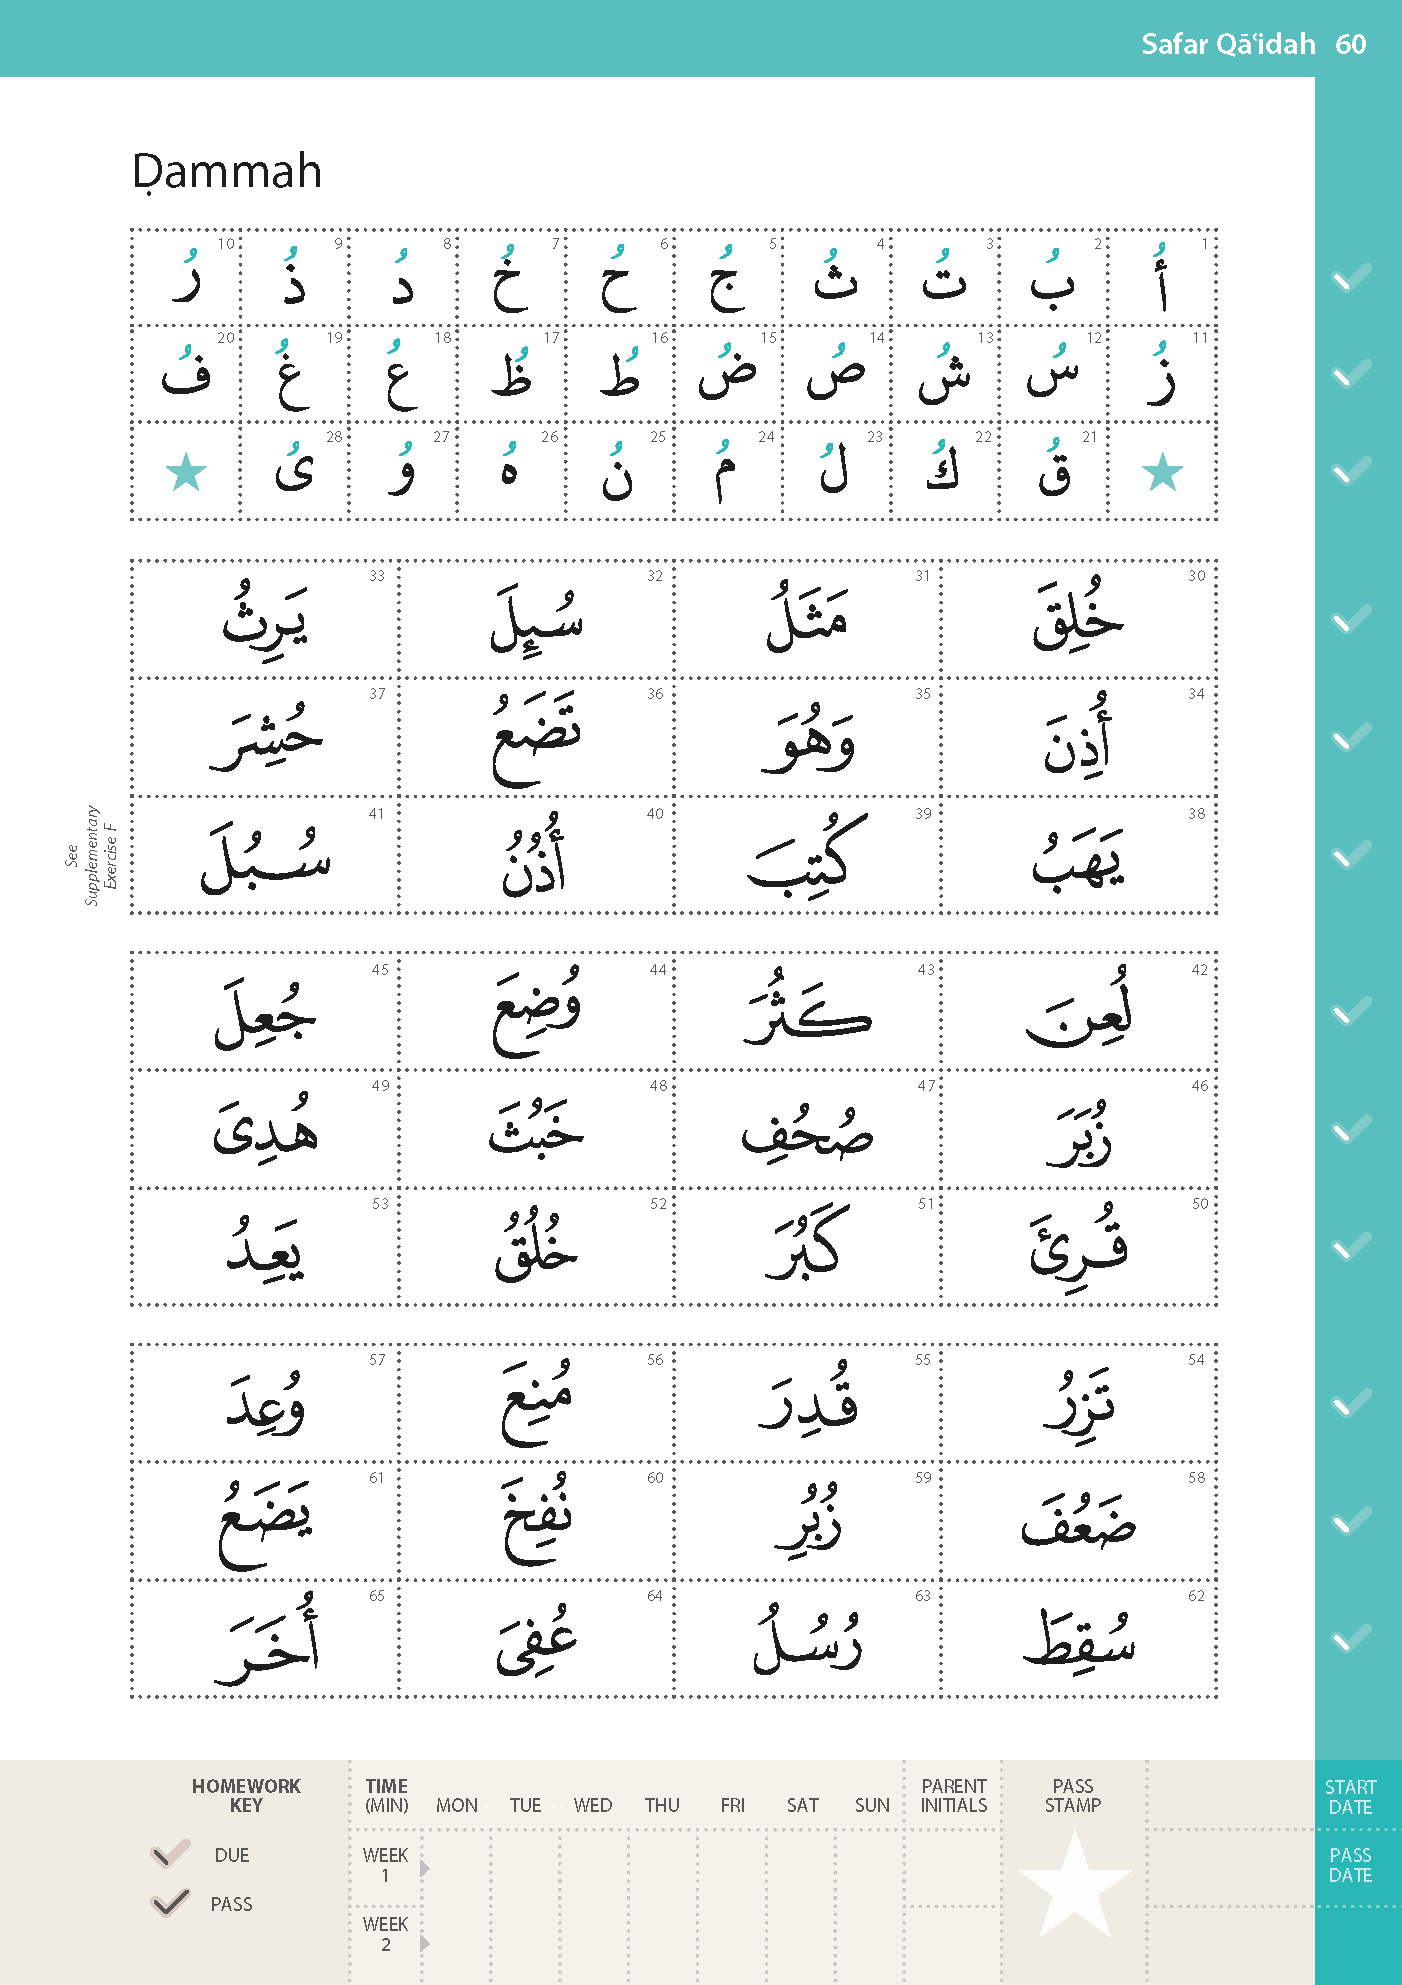 Safar Qāʿidah 60
Ḍammah
1 أُ 2 بُ 3 تُ 4 ثُ 5 جُ 6 حُ 7 خُ 8 دُ 9 ذُ 10 رُ
11 زُ 12 سُ 13 شُ 14 صُ 15 ضُ 16 طُ 17 ظُ 18 عُ 19 غُ 20 فُ
21 قُ 22 كُ 23 لُ 24 مُ 25 نُ 26 هُ 27 وُ 28 ىُ
30 خُلِقَ 31 مَثَلُ 32 سُئِلَ 33 يَرِثُ
34 أُذِنَ 35 وَهُوَ 36 تَضَعُ 37 حُشِرَ
38 يَهَبُ 39 كُتِبَ 40 أُذُنُ 41 سُبُلَ
See Supplementary Exercise F
42 لُعِنَ 43 كَثُرَ 44 وُضِعَ 45 جُعِلَ
46 زُبَرَ 47 صُحُفِ 48 خَبُثَ 49 هُدِىَ
50 قُرِئَ 51 كَبُرَ 52 خُلُقُ 53 يَعِدُ
54 تَزِرُ 55 قُدِرَ 56 مُنِعَ 57 وُعِدَ
58 ضَعُفَ 59 زُبُرِ 60 نُفِخَ 61 يَضَعُ
62 سُقِطَ 63 رُسُلُ 64 عُفِىَ 65 أُخَرَ
HOMEWORK KEY
DUE
PASS
TIME (MIN) MON TUE WED THU FRI SAT SUN PARENT INITIALS PASS STAMP START DATE
WEEK 1
PASS DATE
WEEK 2